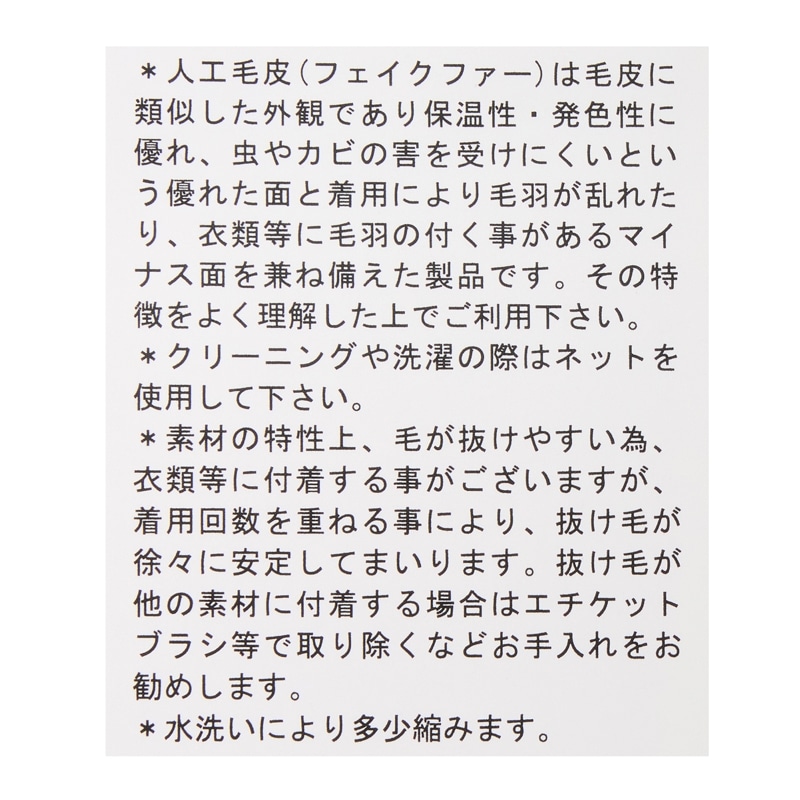 ＊人工毛皮(フェイクファー)は毛皮に
類似した外観であり保温性・発色性に
優れ、虫やカビの害を受けにくいとい
う優れた面と着用により毛羽が乱れた
り、衣類等に毛羽の付く事があるマイ
ナス面を兼ね備えた製品です。その特
徴をよく理解した上でご利用下さい。
＊クリーニングや洗濯の際はネットを
使用して下さい。
＊素材の特性上、毛が抜けやすい為、
衣類等に付着する事がございますが、
着用回数を重ねる事により、抜け毛が
徐々に安定してまいります。抜け毛が
他の素材に付着する場合はエチケット
ブラシ等で取り除くなどお手入れをお
勧めします。
＊水洗いにより多少縮みます。